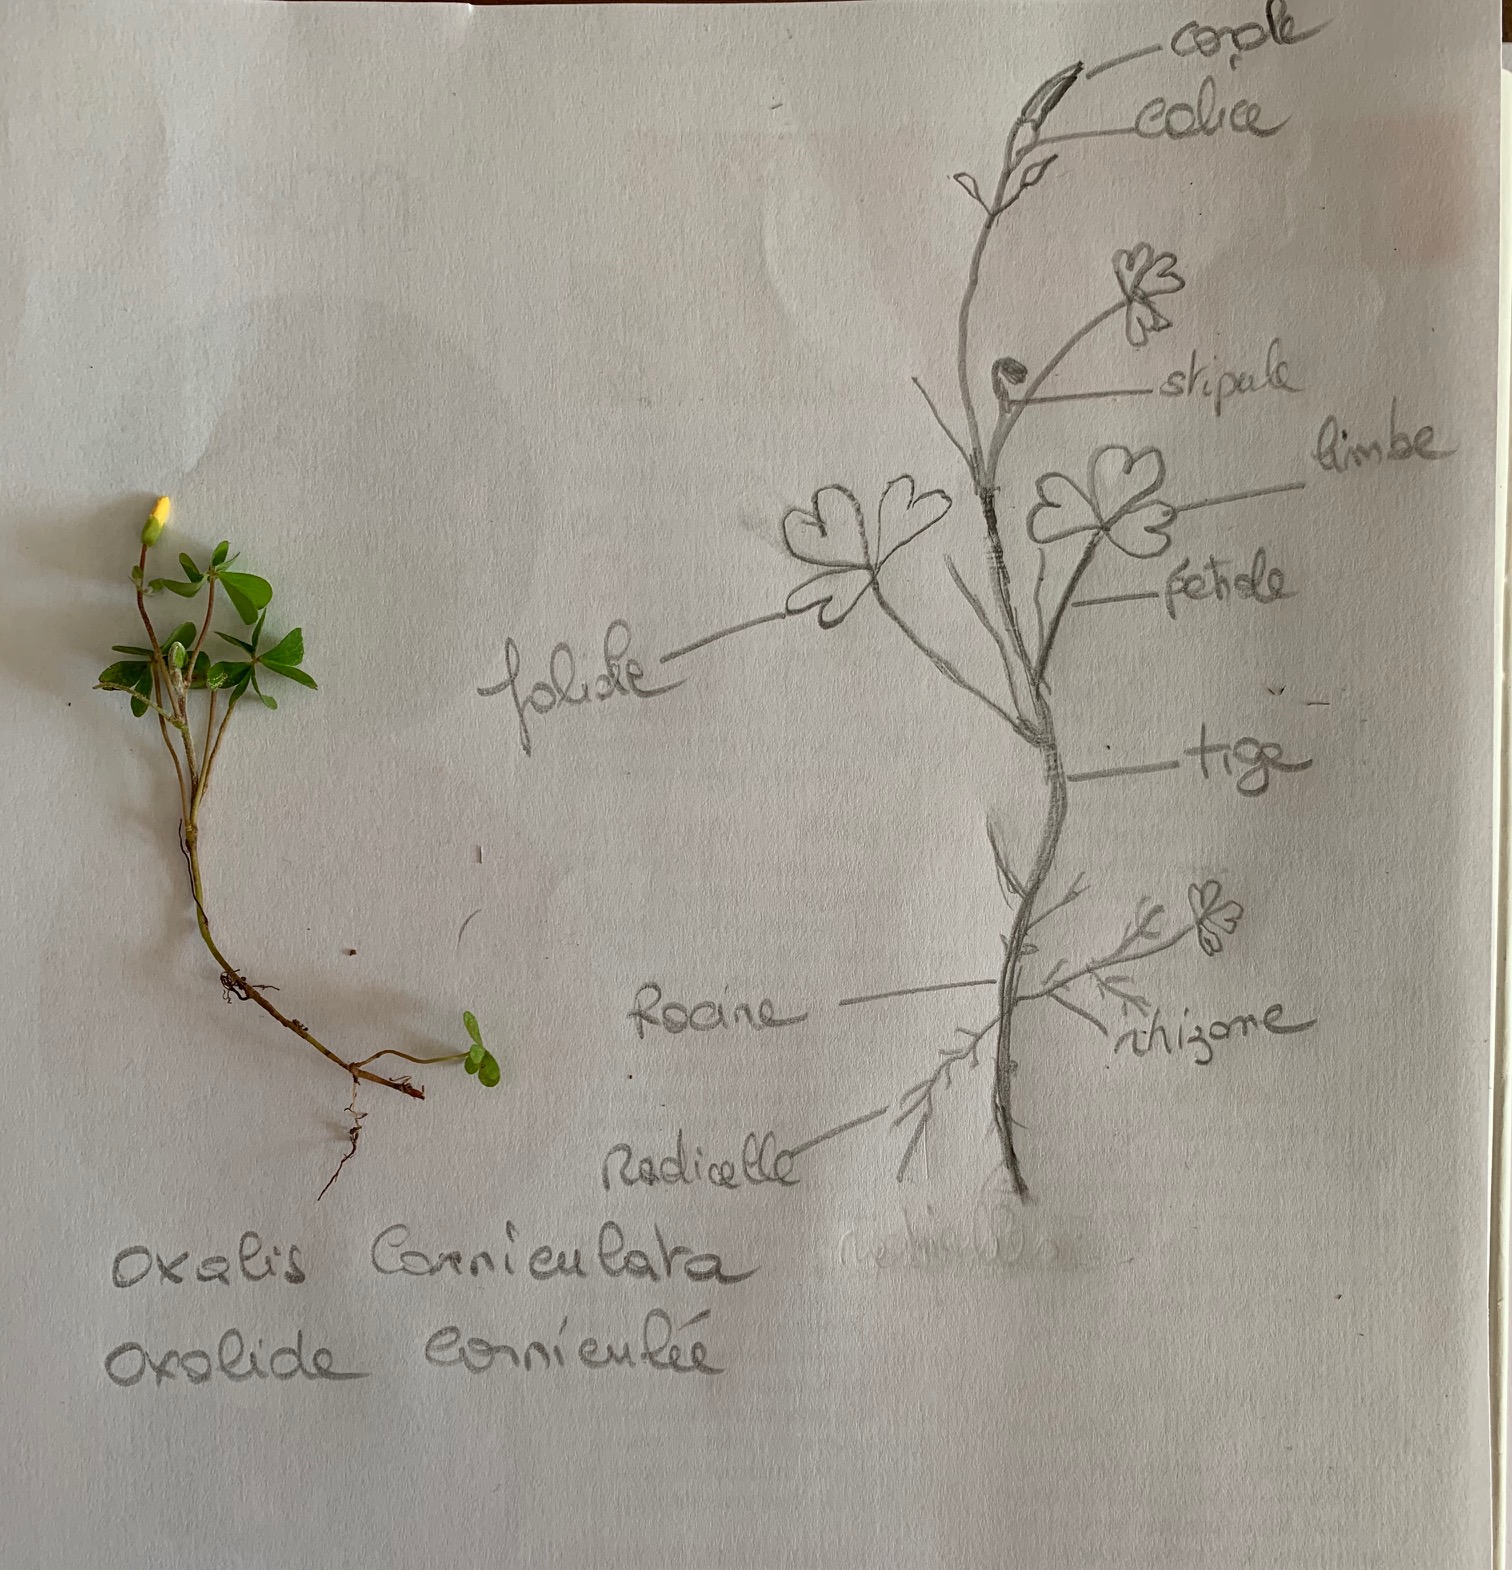 corole
calice
stipule
limbe
pétiole
foliole
tige
Racine
rhizome
Radicelle
Oxalis Corniculata
Oxalide corniculée